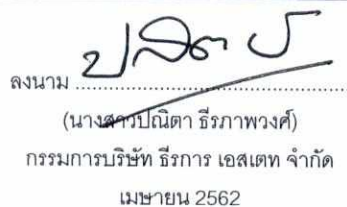 ลงนาม ........................................
(นางสาวปณิตา ธีรภาพวงศ์)
กรรมการบริษัท ธีรการ เอสเตท จำกัด
เมษายน 2562